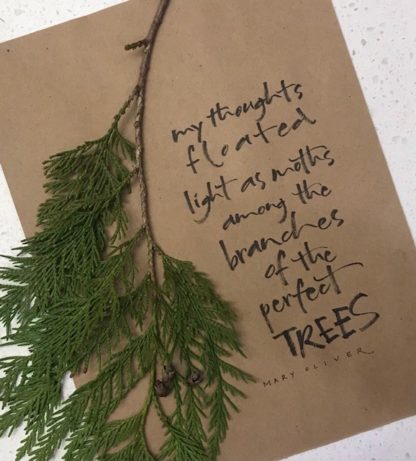 my thoughts
floated
light as moths
among the
branches
of the
perfect
TREES
MARY OLIVER